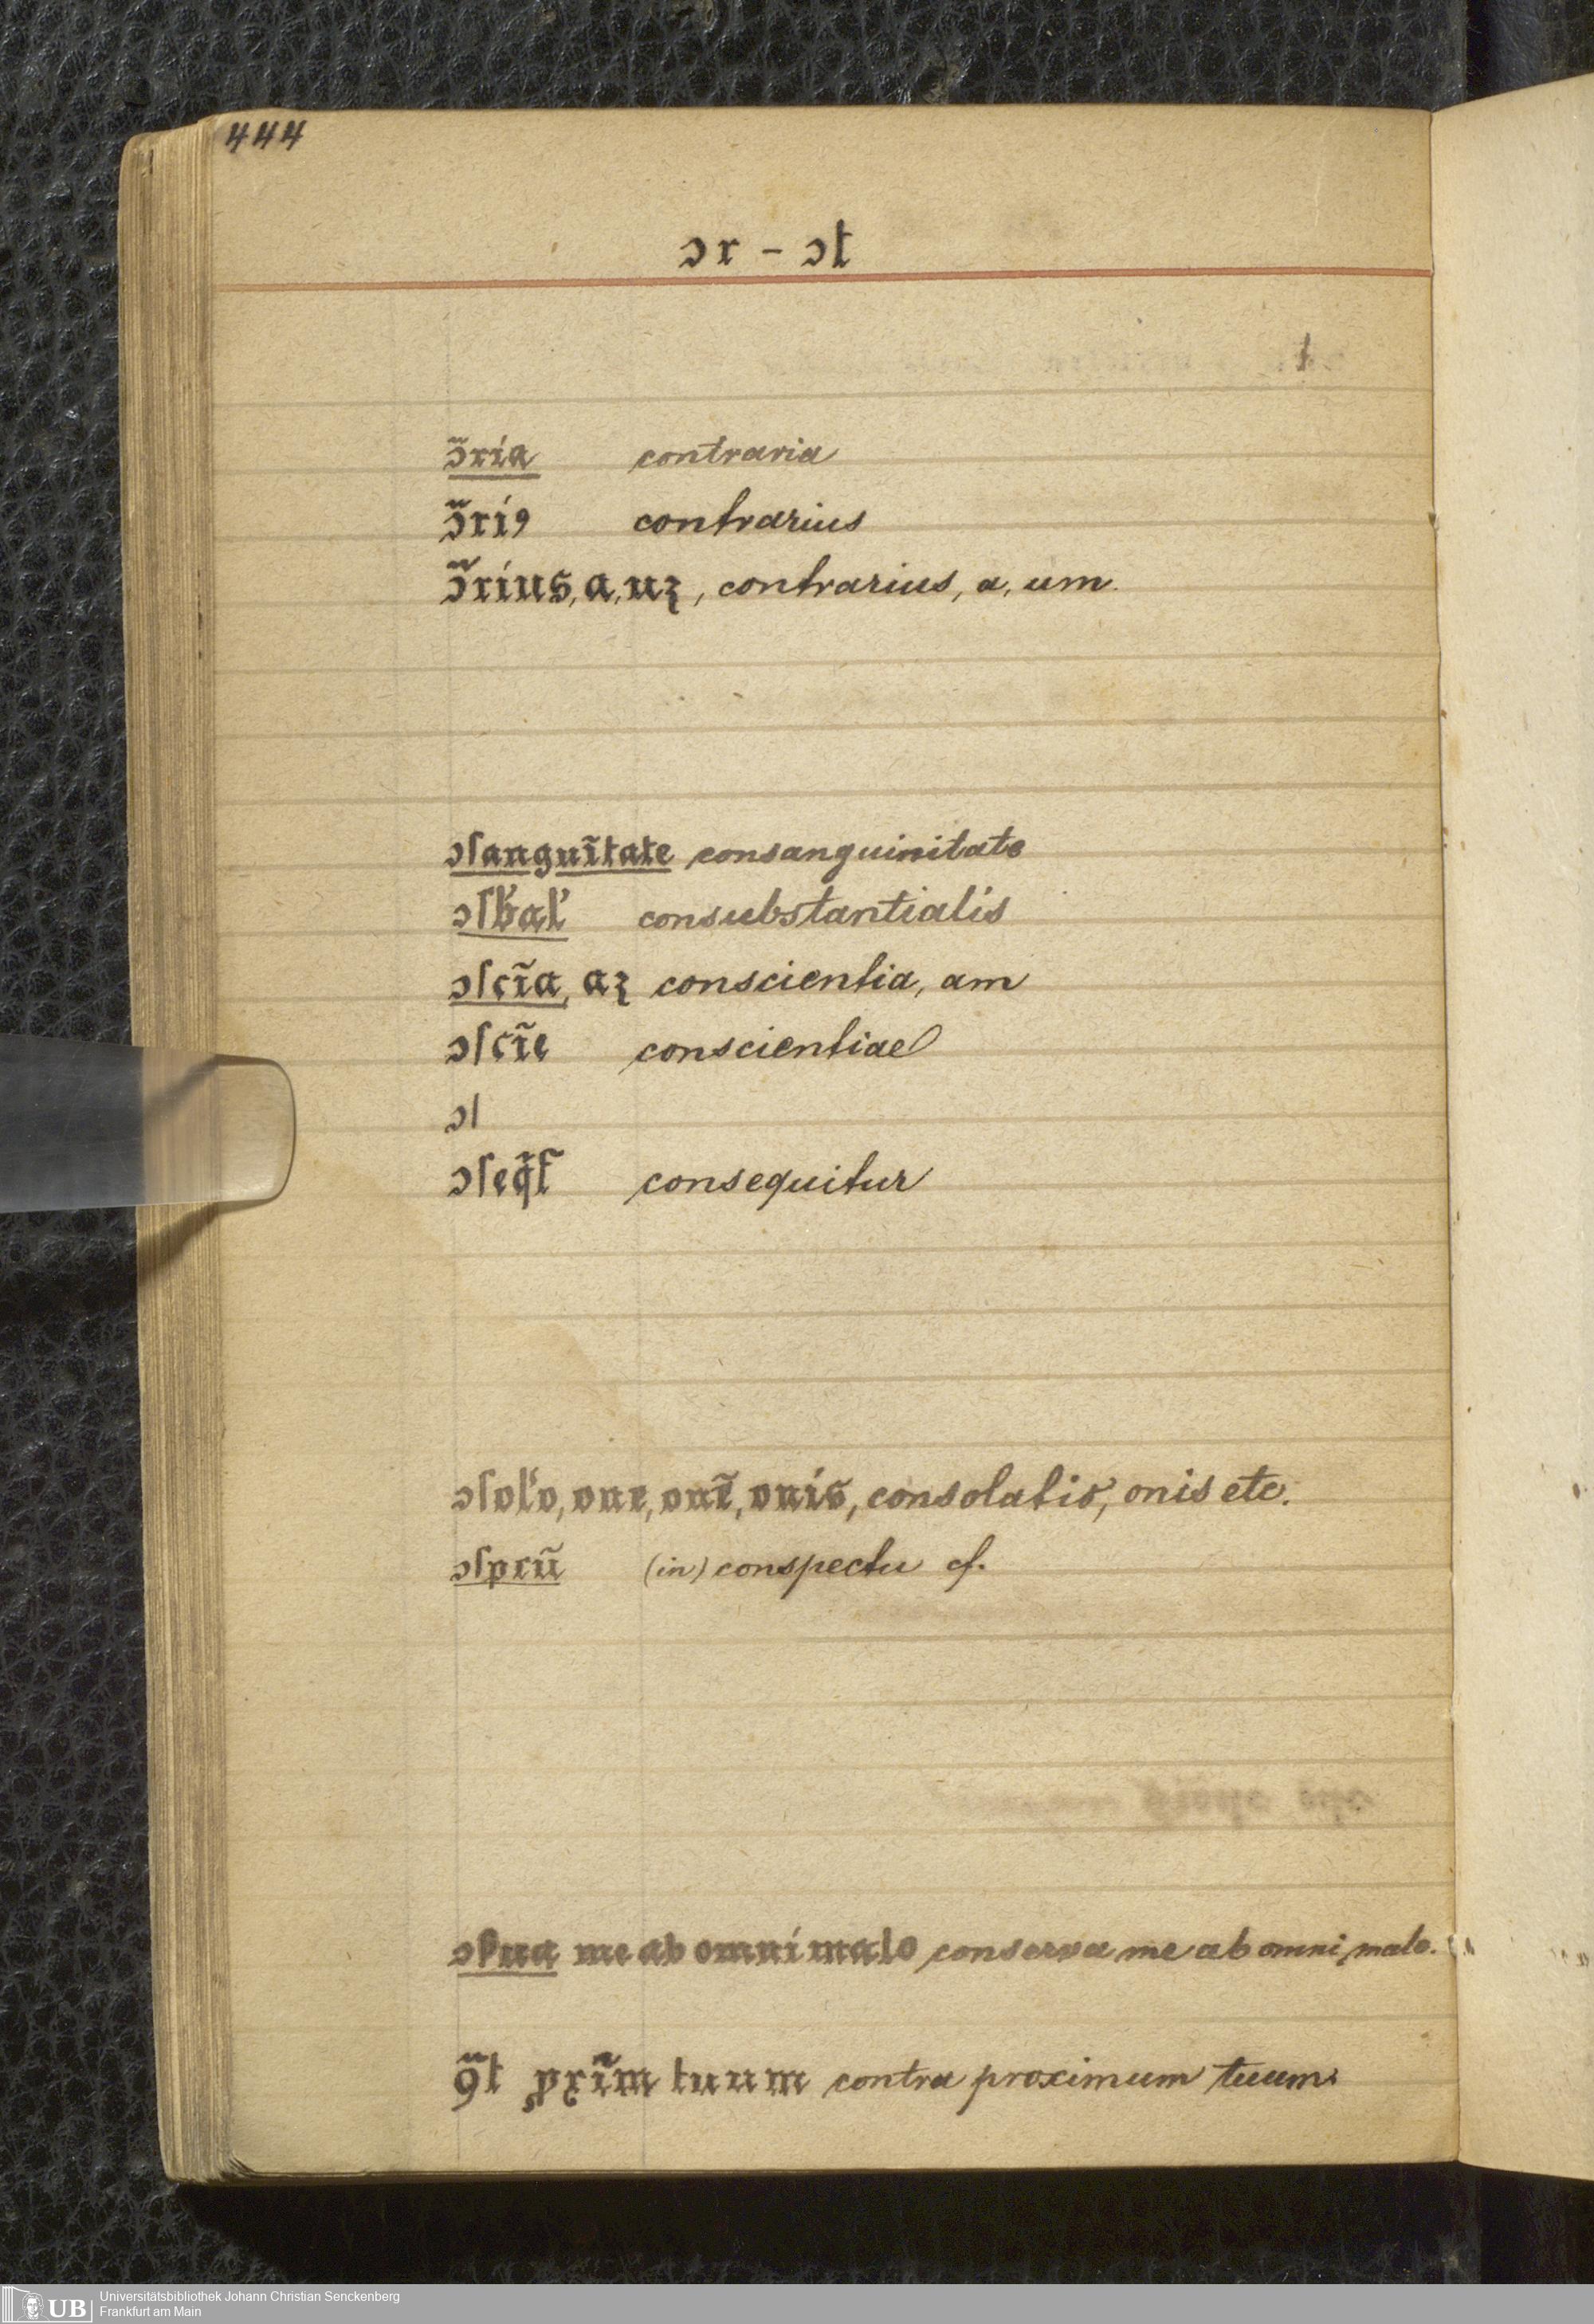 444
ↄr – ↄt
ↄ̃ría contraria
ↄ̃rí9 contrarius
ↄ̃ríus, a, uꝫ, contrarius, a, um.
ↄſanguĩtate consanguinitate
ↄſb'al' consubstantialis
ↄſcĩa, aꝫ conscientia, am
ↄſcĩe conscientiae
ↄſ
ↄſeq̃t̃ consequitur
ↄſol'o, one, onẽ, onís, consolatio, onis etc.
ↄſpcũ (in) conspectu cf.
me ab omní malo conserva me ab omni malo.
9̃t ꝓxĩm tuum contra proximum tuum.
UB Universitätsbibliothek Johann Christian Senckenberg
Frankfurt am Main